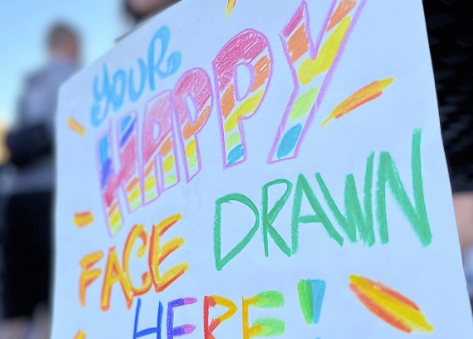 YOUR
HAPPY
FACE DRAWN
HERE!